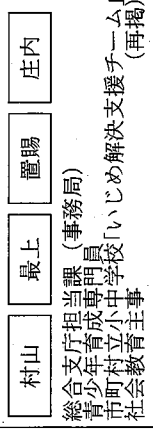 村山
最上
置賜
庄内
総合支庁担当課(事務局)
青少年育成専門員
市町村立小中学校「いじめ解決支援チーム」(再掲)
社会教育主事